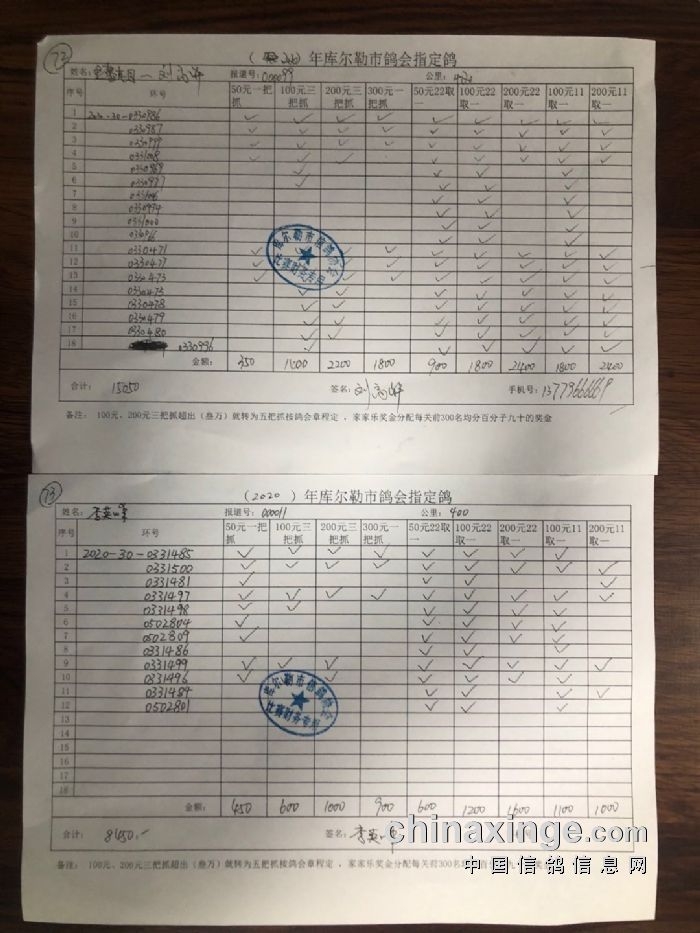 72
年库尔勒市鸽会指定鸽
姓名： 刘高峰 报道号：000099 公里：
序号 环号 50元一把抓 100元三把抓 200元三把抓 300元一把抓 50元22取一 100元22取一 200元22取一 100元11取一 200元11取一
1 2020-30-0330986 ✓ ✓ ✓ ✓ ✓ ✓ ✓ ✓ ✓
2 0330987
3
4 0331008
5 0330989
6
7
8 0330994
9 0331000
10
11 0330471
12
13 0330473
14 0330475
15 0330478
16 0330479
17 0330480
18 0330996
金额： 350 2200 1800 900 1800 2400 1800 2400
合计： 15050 签名：刘高峰 手机号：
备注： 100元、200元三把抓超出（叁万）就转为五把抓按鸽会章程定，家家乐奖金分配每关前300名均分百分子九十的奖金
库尔勒市信鸽协会
比赛财务专用
73
（2020）年库尔勒市鸽会指定鸽
姓名：李英峰 报道号：000011 公里：400
序号 环号 50元一把抓 100元三把抓 200元三把抓 300元一把抓 50元22取一 100元22取一 200元22取一 100元11取一 200元11取一
1 2020-30-0331485
2 0331500
3 0331481
4 0331497
5 0331498
6 0502804
7 0502809
8 0331486
9 0331499
10 0331496
11 0331484
12 0502801
13
14
15
16
17
18
金额： 450 600 1000 900 600 1200 1600 1100 1000
合计： 8450.- 签名：李英峰
备注： 100元、200元三把抓超出（叁万）就转为五把抓按鸽会章程定，家家乐奖金分配每关前300名
库尔勒市信鸽协会
比赛财务专用
chinaxinge.com
中国信鸽信息网